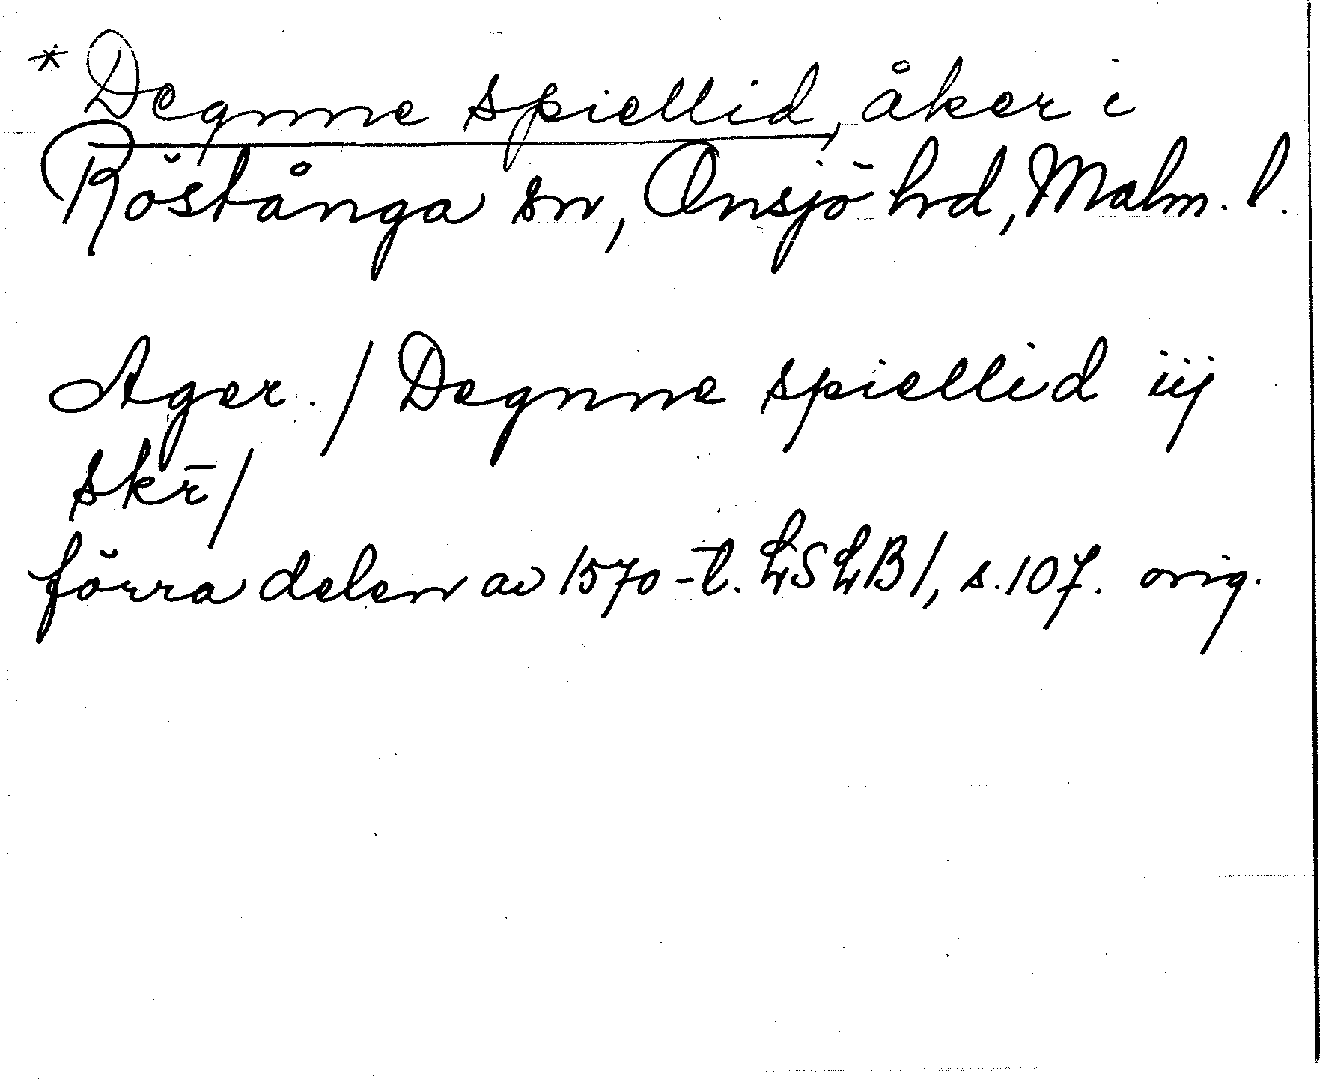 * Degnne spiellid, åker i
Röstånga sn, Onsjö hd, Malm. l.
Ager. / Degnne spiellid iij
skr̄ /
förra delen av 1570-t. LSLB1, s. 107. orig.